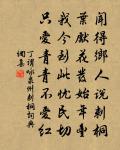 聞得鄉人說刺桐
葉獻花發始年豐
我今到此忧民切
只愛青青不愛紅
丁謂咏泉州刺桐詞典
網集